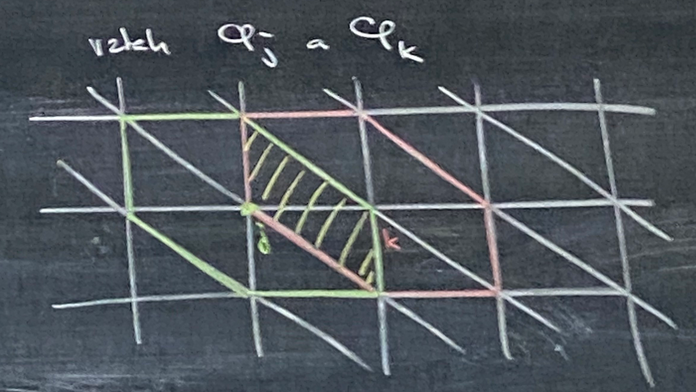 vztah φj a φk
j k